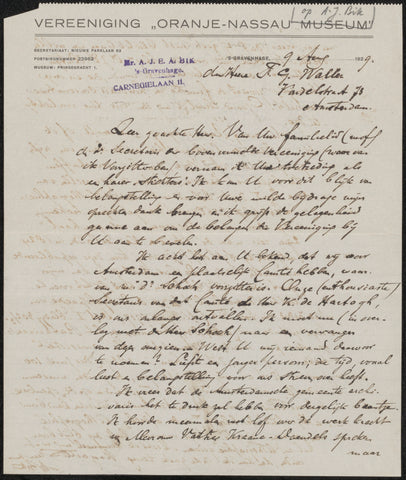 (op A.J. Bik)
VEREENIGING „ORANJE-NASSAU MUSEUM"
SECRETARIAAT: NIEUWE PARKLAAN 62
POSTGIRONUMMER 22062
MUSEUM: PRINSEGRACHT 1.
Mr. A. J. E. A. BIK
's-Gravenhage.
CARNEGIELAAN 11.
'S-GRAVENHAGE, 9 Aug 1929.
den Heer F. G. Waller
Vondelstraat 73
Amsterdam.
Zeer geachte Heer. Van Uw familielid
de Secretaris der bovenvermelde Vereeniging (waarvan
ik Voorzitter ben) vernam ik Uwe toetreding als
en haren Stichters. Ik kan U voor dit blijk van
belangstelling en voor Uwe milde bijdrage mijn
oprechten dank brengen en ik grijp de gelegenheid
gaarne aan om de belangen der Vereeniging bij
U aan te bevelen.
Ik acht het aan U bekend, dat wij voor
Amsterdam een plaatselijk Comité hebben, waar-
van voorzitter is. Onze (enthousiaste)
Secretaris van dat Comité de Heer K. de Hartogh,
is ons onlangs ontvallen. Ik moet nu (in over-
leg met de Heer Schoch) naar een vervanger
van dezen omzien. Weet U mij iemand daarvoor
te noemen? Liefst een jonger persoon, die tijd, vooral
lust en belangstelling voor ons streven heeft.
Ik vrees dat de Amsterdamsche gemeente archi-
varis het te druk zal hebben voor dergelijk baantje.
Ik hoorde met lof over de werkkracht
en Mevrouw Bakker spreken
maar